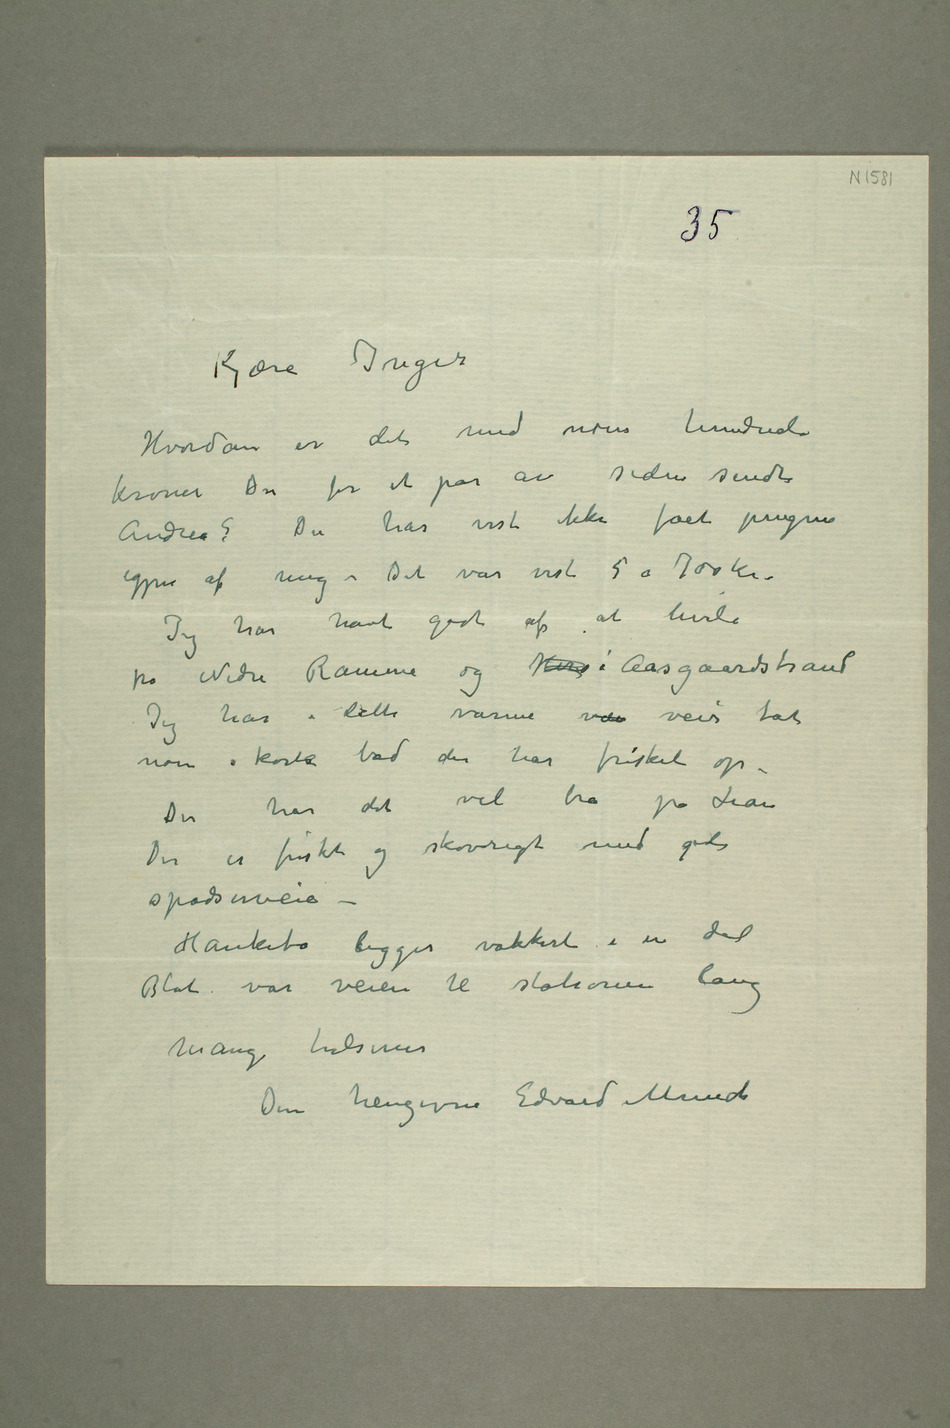 N 1581
35
Kjære Inger
Hvordan er det med noen hundrede
kroner Du for et par år siden sendte
Andrea? Du har vist ikke fået pengene
igjen af mig – Det var vist 5 a 700 kr.
Jeg har havt godt af at hvile
på Nedre Ramme og i Aasgaardstrand
Jeg har i dette varme veir tat
noen korte bad der har frisket op –
Du har det vel bra på Lian
Der er friskt og skovrigt med gode
spadserveie –
Hankebo ligger vakkert i en dal
Blot var veien til stationen lang
Mange hilsener
Din hengivne Edvard Munch